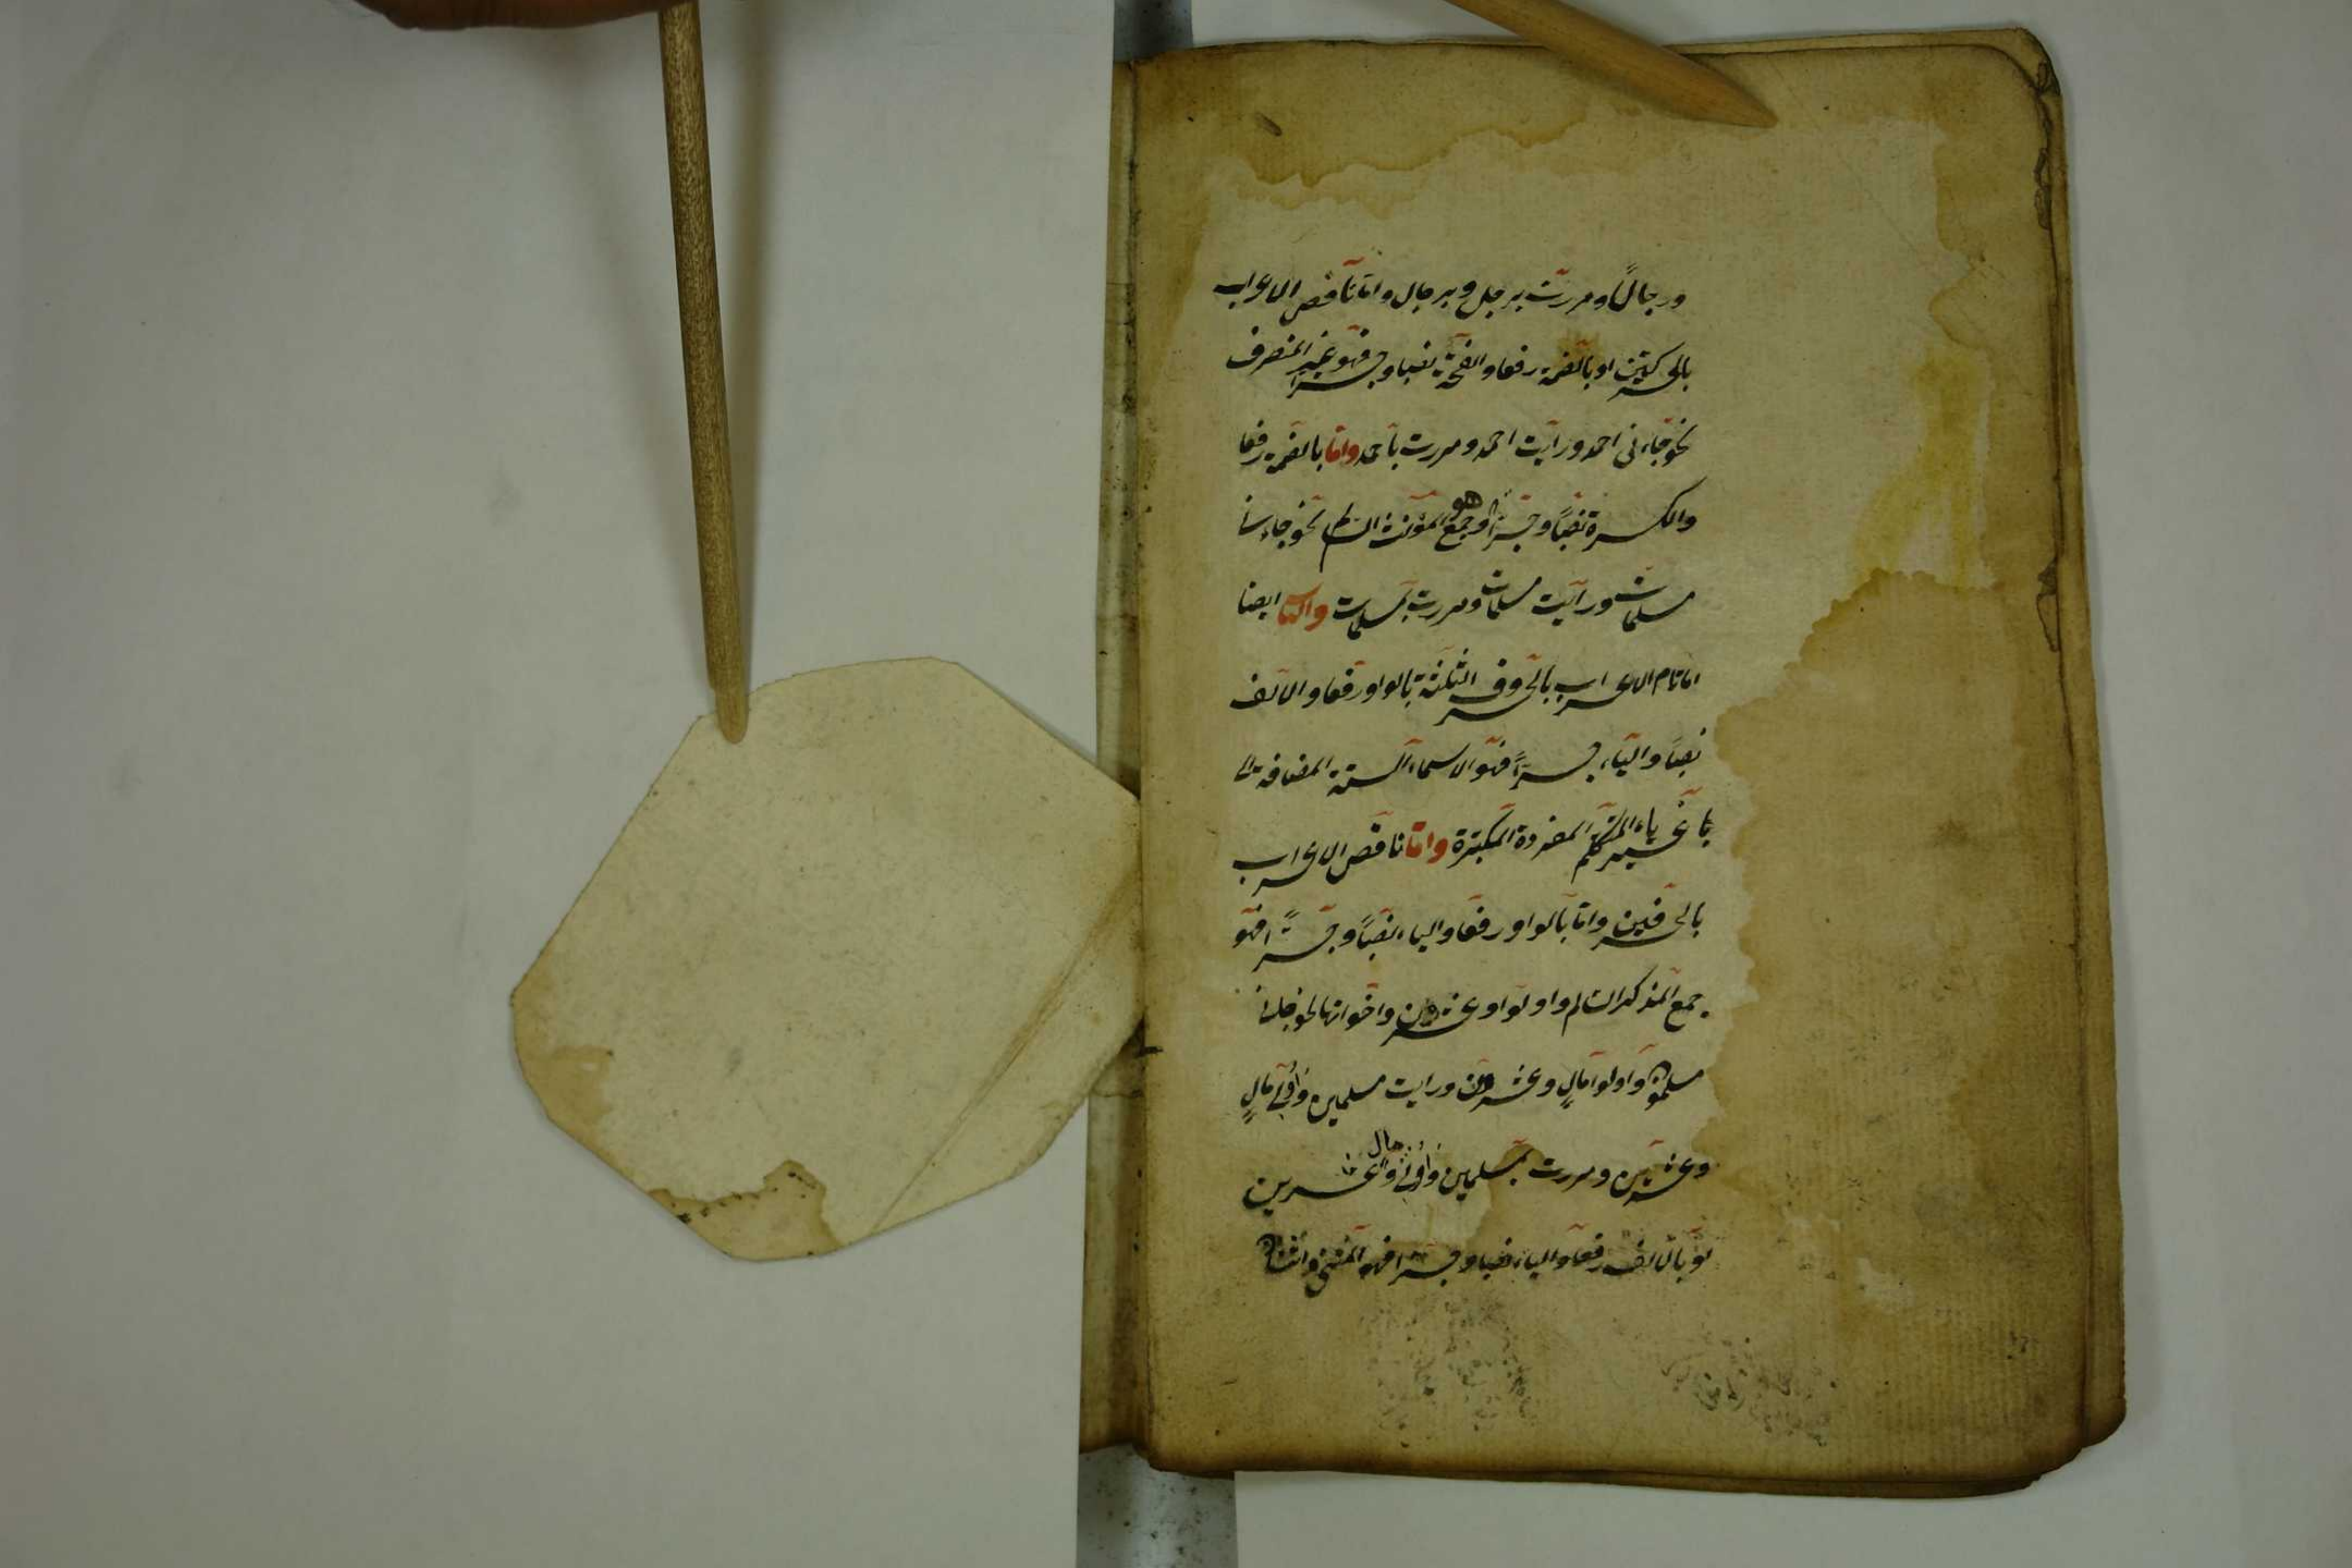 ورجالًا ومررت برجل وبرجال واما ناقص الاعراب
بالحركتين اما بالضمة رفعا والفتحة نصبا وجرا فهو غير المنصرف
نحو جاءنى احمد ورأيت احمد ومررت باحمد واما بالضمة رفعا
والكسرة نصبًا وجرًا وهو جمع المؤنث السالم نحو جاءنى
مسلمات ورأيت مسلمات ومررت بمسلمات والثانى ايضا
اما تام الاعراب بالحروف الثلثة بالواو رفعا والالف
نصبًا والياء جرًا فهو الاسماء الستة المضافة الى
غير ياء المتكلم المفردة المكبرة واما ناقص الاعراب
بالحرفين واما بالواو رفعا والياء نصبًا وجرًا فهو
جمع المذكر السالم واولو وعشرون واخواتها نحو جاءنى
مسلمون واولوا مالٍ وعشرون ورايت مسلمين واُولى مالٍ
وعشرين ومررت بمسلمين واُولى مال وعشرين
او بالالف رفعا والياء نصبا وجرا فهو المثنى واثنان